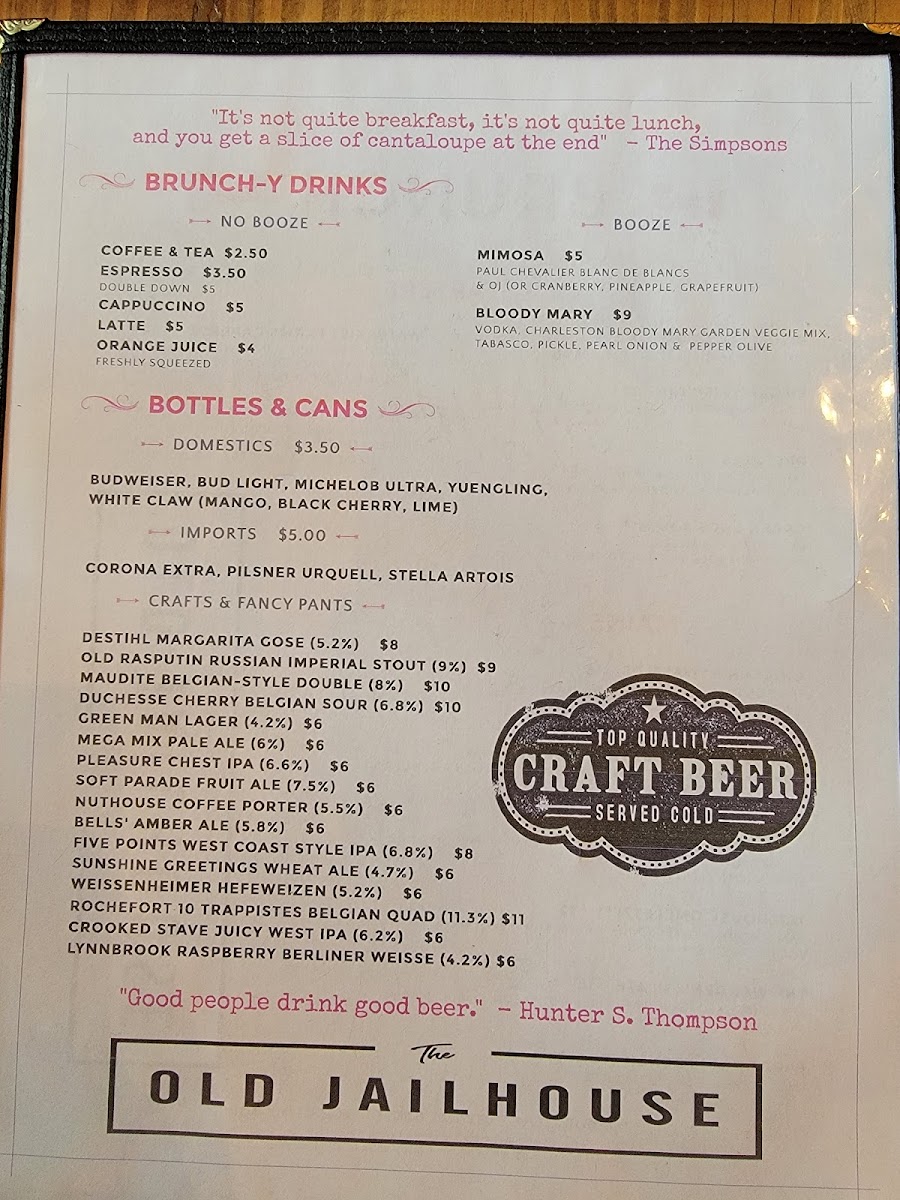 "It's not quite breakfast, it's not quite lunch,
and you get a slice of cantaloupe at the end" - The Simpsons
BRUNCH-Y DRINKS
NO BOOZE
COFFEE & TEA $2.50
ESPRESSO $3.50
DOUBLE DOWN $5
CAPPUCCINO $5
LATTE $5
ORANGE JUICE $4
FRESHLY SQUEEZED
BOOZE
MIMOSA $5
PAUL CHEVALIER BLANC DE BLANCS
& OJ (OR CRANBERRY, PINEAPPLE, GRAPEFRUIT)
BLOODY MARY $9
VODKA, CHARLESTON BLOODY MARY GARDEN VEGGIE MIX,
TABASCO, PICKLE, PEARL ONION & PEPPER OLIVE
BOTTLES & CANS
DOMESTICS $3.50
BUDWEISER, BUD LIGHT, MICHELOB ULTRA, YUENGLING,
WHITE CLAW (MANGO, BLACK CHERRY, LIME)
IMPORTS $5.00
CORONA EXTRA, PILSNER URQUELL, STELLA ARTOIS
CRAFTS & FANCY PANTS
DESTIHL MARGARITA GOSE (5.2%) $8
OLD RASPUTIN RUSSIAN IMPERIAL STOUT (9%) $9
MAUDITE BELGIAN-STYLE DOUBLE (8%) $10
DUCHESSE CHERRY BELGIAN SOUR (6.8%) $10
GREEN MAN LAGER (4.2%) $6
MEGA MIX PALE ALE (6%) $6
PLEASURE CHEST IPA (6.6%) $6
SOFT PARADE FRUIT ALE (7.5%) $6
NUTHOUSE COFFEE PORTER (5.5%) $6
BELLS' AMBER ALE (5.8%) $6
FIVE POINTS WEST COAST STYLE IPA (6.8%) $8
SUNSHINE GREETINGS WHEAT ALE (4.7%) $6
WEISSENHEIMER HEFEWEIZEN (5.2%) $6
ROCHEFORT 10 TRAPPISTES BELGIAN QUAD (11.3%) $11
CROOKED STAVE JUICY WEST IPA (6.2%) $6
LYNNBROOK RASPBERRY BERLINER WEISSE (4.2%) $6
TOP QUALITY
CRAFT BEER
SERVED COLD
"Good people drink good beer." - Hunter S. Thompson
The
OLD JAILHOUSE